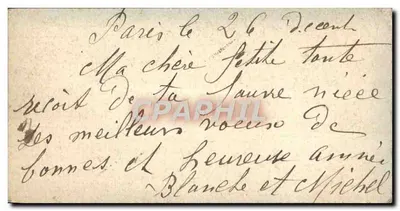 Paris le 26 decemb
Ma chère petite tante
reçoit de ta pauvre nièce
les meilleurs voeux de
bonnes et heureuse année
Blanche et Michel
CPAPHIL